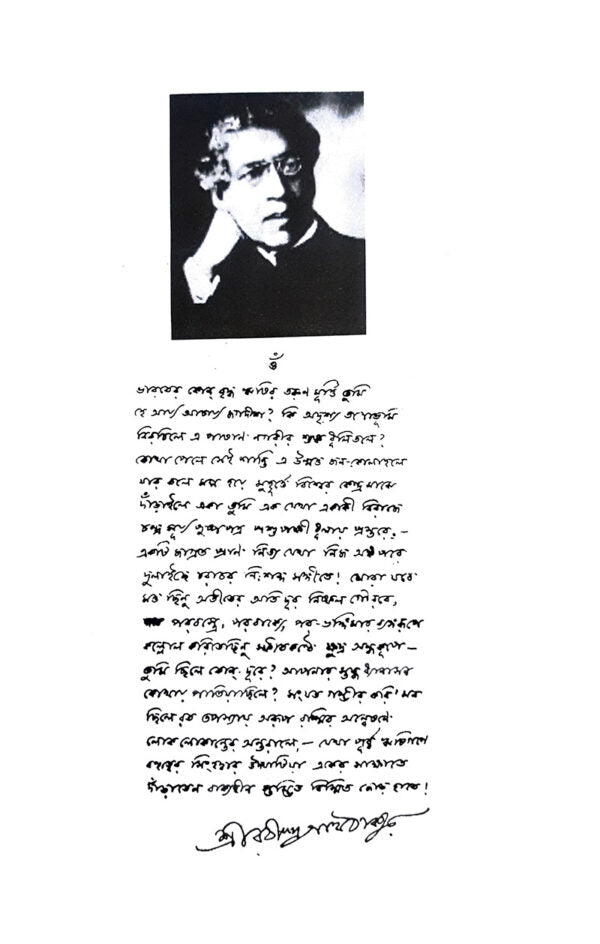 ওঁ
ভারতের কোন বৃদ্ধ ঋষির তরুণ মূর্ত্তি তুমি
হে আর্য্য আচার্য্য জগদীশ? কি অদৃশ্য তপোভূমি
বিরচিলে এ পাষাণ নগরীর শুষ্ক ধূলিতলে?
কোথা পেলে সেই শান্তি এ উন্মত্ত জন-কোলাহলে
যার তলে মগ্ন হয়ে মুহূর্ত্তে বিশ্বের কেন্দ্র মাঝে
দাঁড়াইলে একা তুমি এক যেথা একাকী বিরাজে
চন্দ্র সূর্য্য পুষ্পপত্র পশুপক্ষী ধূলায় প্রস্তরে,—
একটি জাগ্রত প্রাণ নিত্য যেথা নিজ অঙ্ক পরে
দুলাইছে চরাচর নিঃশব্দ সঙ্গীতে! মোরা যবে
মত্ত ছিনু অতীতের অতি দূর নিষ্ফল গৌরবে,
পরবস্ত্রে, পরবাক্যে, পর-ভঙ্গিমার ব্যঙ্গরূপে
কল্লোল করিতেছিনু স্ফীতকণ্ঠে ক্ষুদ্র অন্ধকূপে—
তুমি ছিলে কোন্ দূরে? আপনার স্তব্ধ ধ্যানাসন
কোথায় পাতিয়াছিলে? সংযত গম্ভীর করি' মন
ছিলে রত তপস্যায় অরূপ রশ্মির অন্বেষণে
লোক লোকান্তের অন্তরালে,— যেথা পূর্ব্ব ঋষিগণে
বহুত্বের সিংহদ্বার উদ্ঘাটিয়া একের সাক্ষাতে
দাঁড়াতেন বাক্যহীন স্তম্ভিত বিস্মিত জোড় হাতে!
শ্রীরবীন্দ্রনাথ ঠাকুর